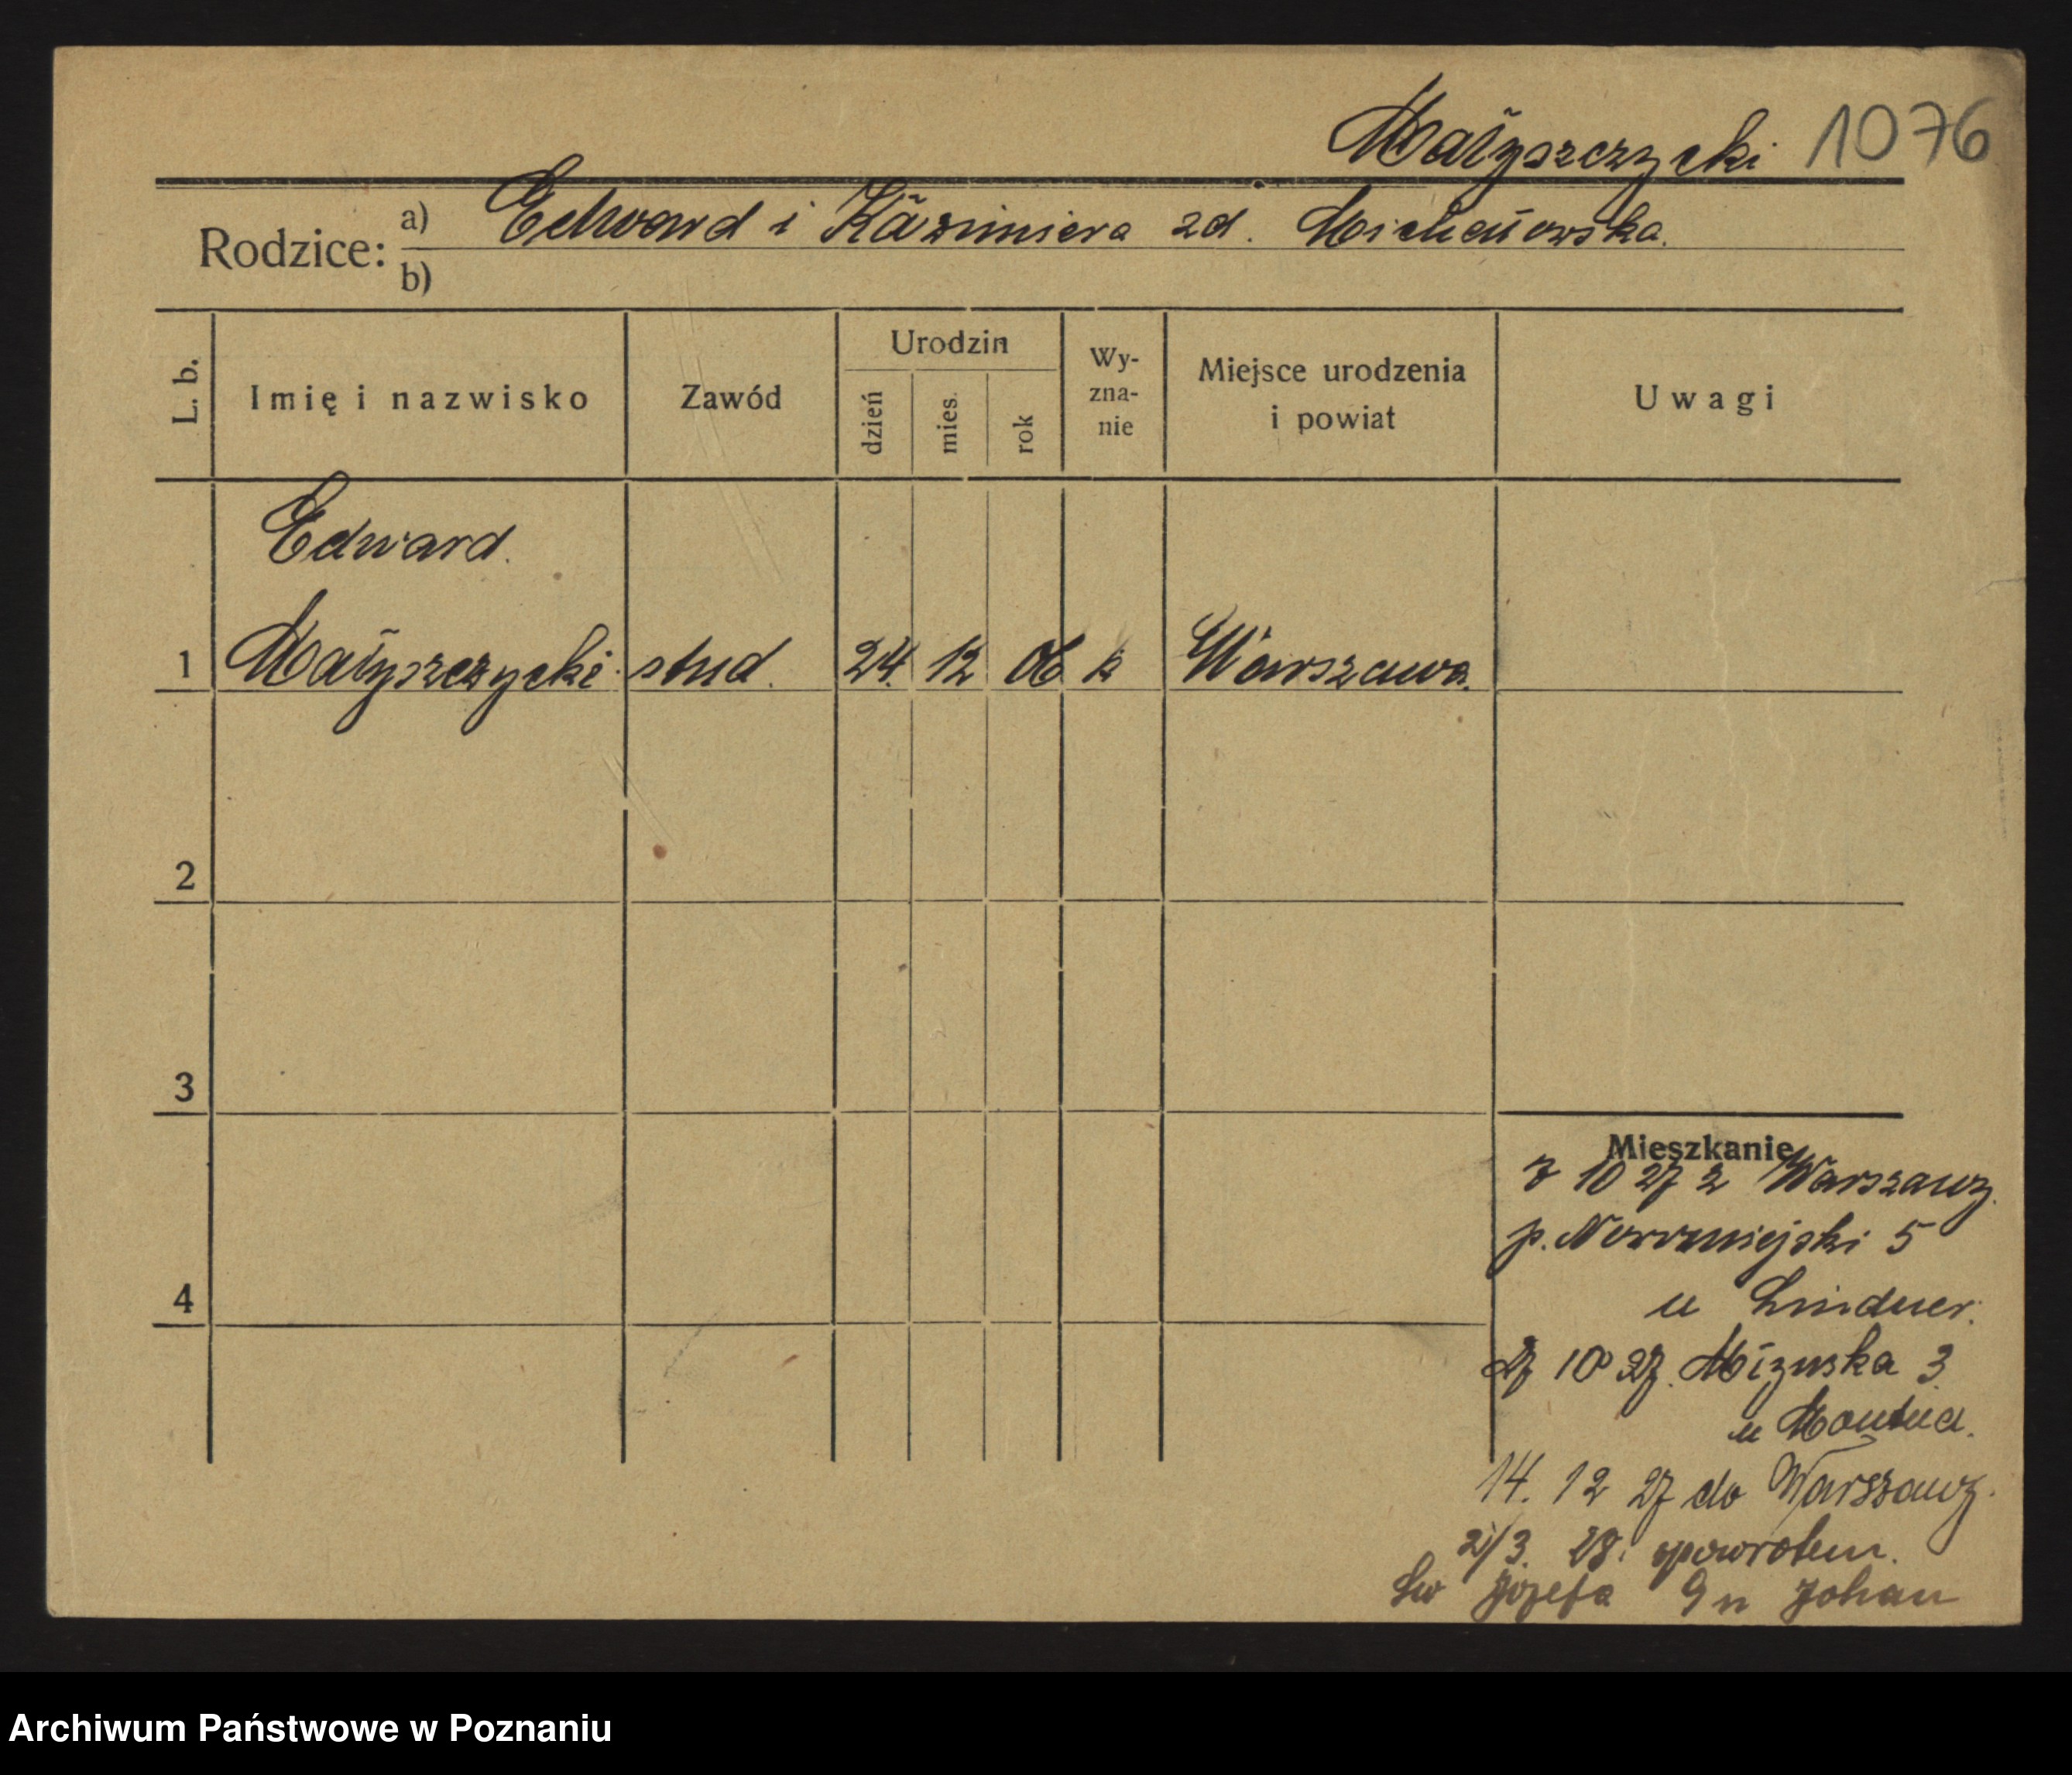 Małyszczycki 1076
Rodzice: a) Edward i Kazimiera zd. Michałowska.
b)
L. b. Imię i nazwisko Zawód Urodzin dzień mies. rok Wy-zna-nie Miejsce urodzenia i powiat Uwagi
Edward.
1 Małyszczycki stud. 24. 12 06 k Warszawa.
2
3
Mieszkanie
7 10 27 z Warszawy.
p. Nowomiejski 5
4
u Lindner.
27 10 27. 3
u
14. 12 27 do Warszawy.
2/3. 28. spowrotem.
Św Józefa 9 n Johan
Archiwum Państwowe w Poznaniu